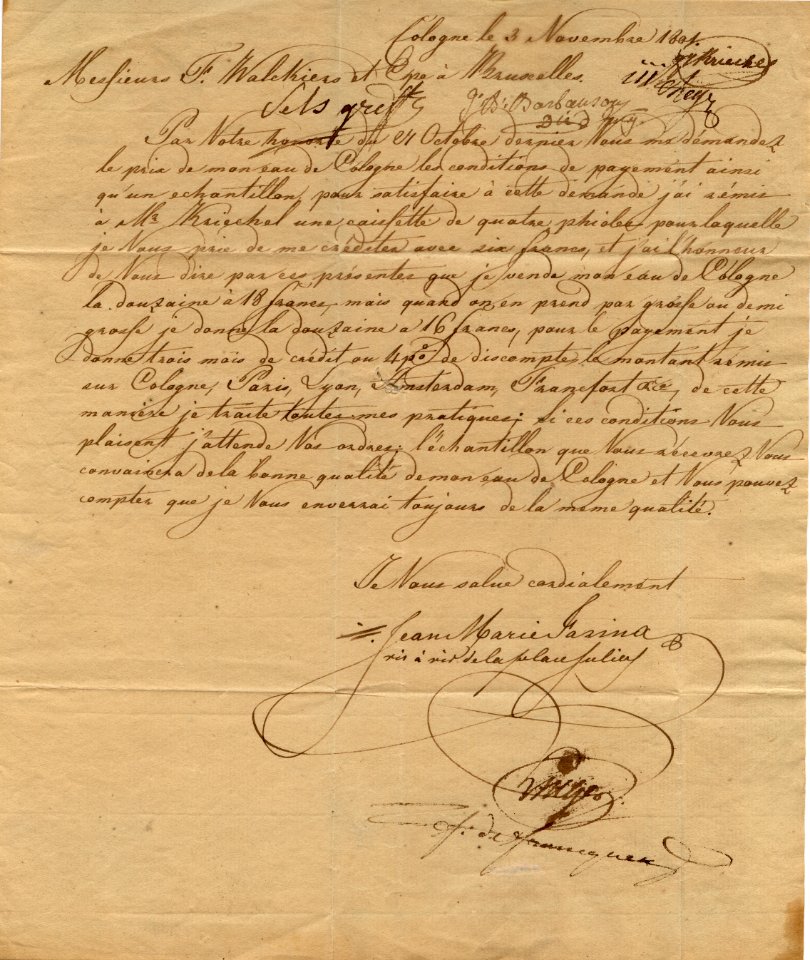 Cologne le 3 Novembre 1801.
Messieurs F. Walckiers et Cpe à Bruxelles.
Kriechel
Sels greff
Par Votre honorée du 24 Octobre dernier Vous me demandez
le prix de mon eau de Cologne les conditions de payement ainsi
qu'un echantillon, pour satisfaire à cette demande j'ai rémis
à Mr. Kriechel une caissette de quatre phioles pour laquelle
je Vous prie de me créditer avec six francs, et j'ai l'honneur
de Vous dire par ces présentes que je vende mon eau de Cologne
la douzaine à 18 francs, mais quand on en prend par grosse ou demi
grosse je donne la douzaine a 16 francs, pour le payement je
donne trois mois de crédit ou 4 po de discompte, le montant rémis
sur Cologne, Paris, Lyon, Amsterdam, Francfort &c, de cette
maniére je traite toutes mes pratiques; si ces conditions Vous
plaisent j'attende Vos ordres; l'échantillon que Vous récevrez Vous
convaincra de la bonne qualité de mon eau de Cologne et Vous pouvez
compter que je Vous enverrai toujours de la meme qualité.
Je Vous salue cordialement
Jean Marie Farina
vis à vis de la place Juliers